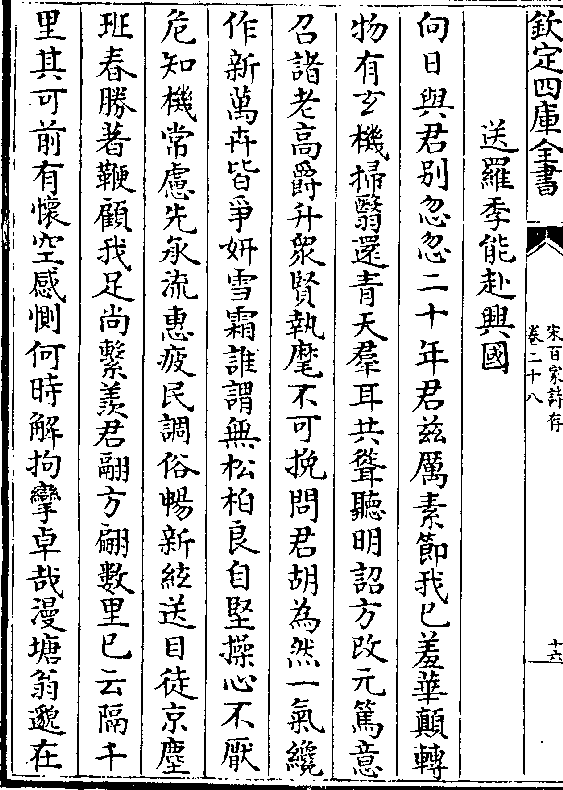 欽定四庫全書
宋百家詩存
卷二十八
十六
送羅季能赴興國
向日與君别忽忽二十年君兹厲素節我已羞華顛轉
物有玄機掃翳還青天羣耳共聳聽明詔方改元篤意
召諸老高爵升衆賢執麾不可挽問君胡為然一氣纔
作新萬卉皆爭妍雪霜誰謂無松柏良自堅操心不厭
危知機常慮先承流惠疲民調俗暢新絃送目徒京塵
班春勝著鞭顧我足尚繫羨君翮方翩數里已云隔千
里其可前有懷空感惻何時解拘攣卓哉漫塘翁邈在